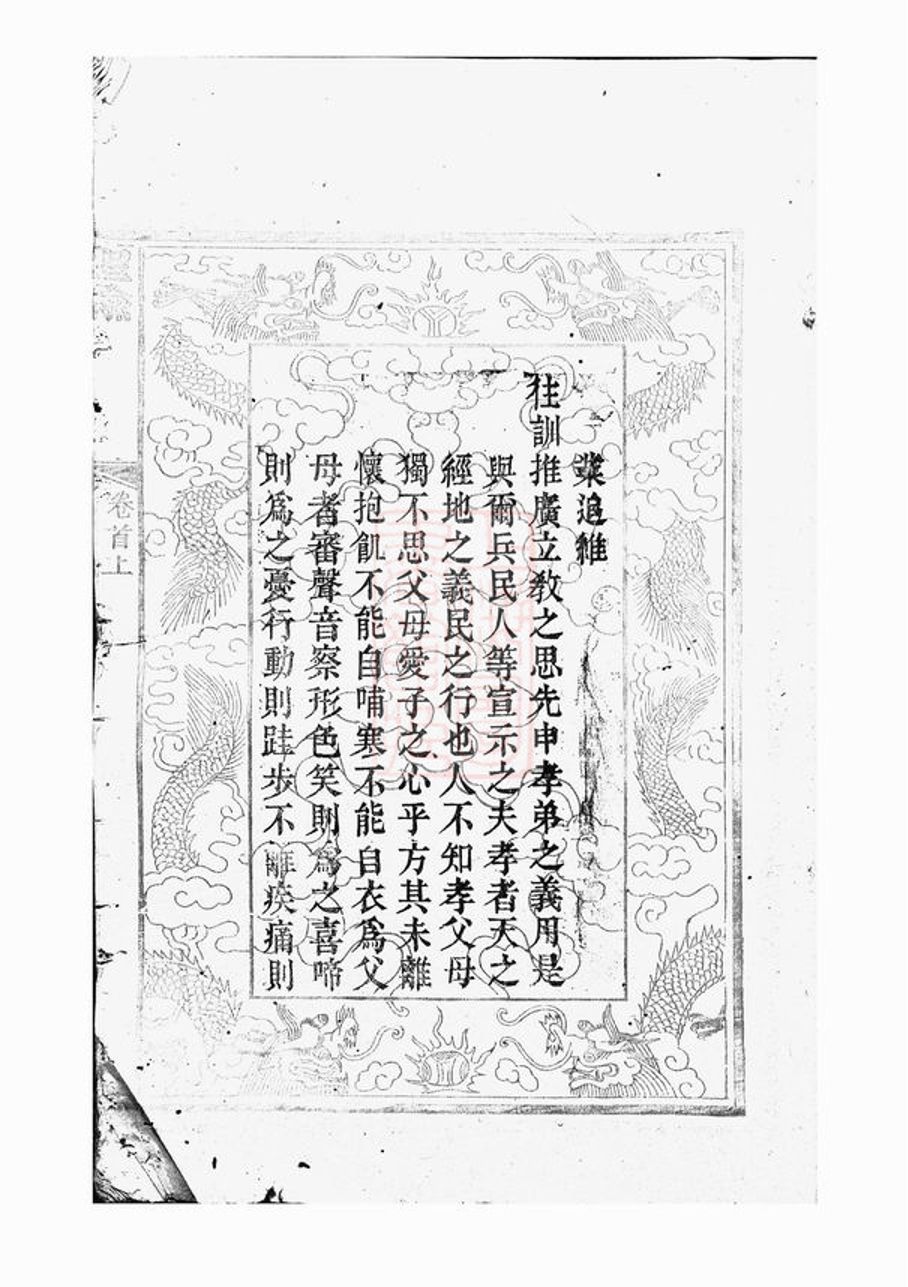 業追維
往訓推廣立教之思先申孝弟之義用是
與爾兵民人等宣示之夫孝者天之
經地之義民之行也人不知孝父母
獨不思父母愛子之心乎方其未離
懷抱飢不能自哺寒不能自衣為父
母者審聲音察形色笑則為之喜啼
則為之憂行動則跬步不離疾痛則
卷首上